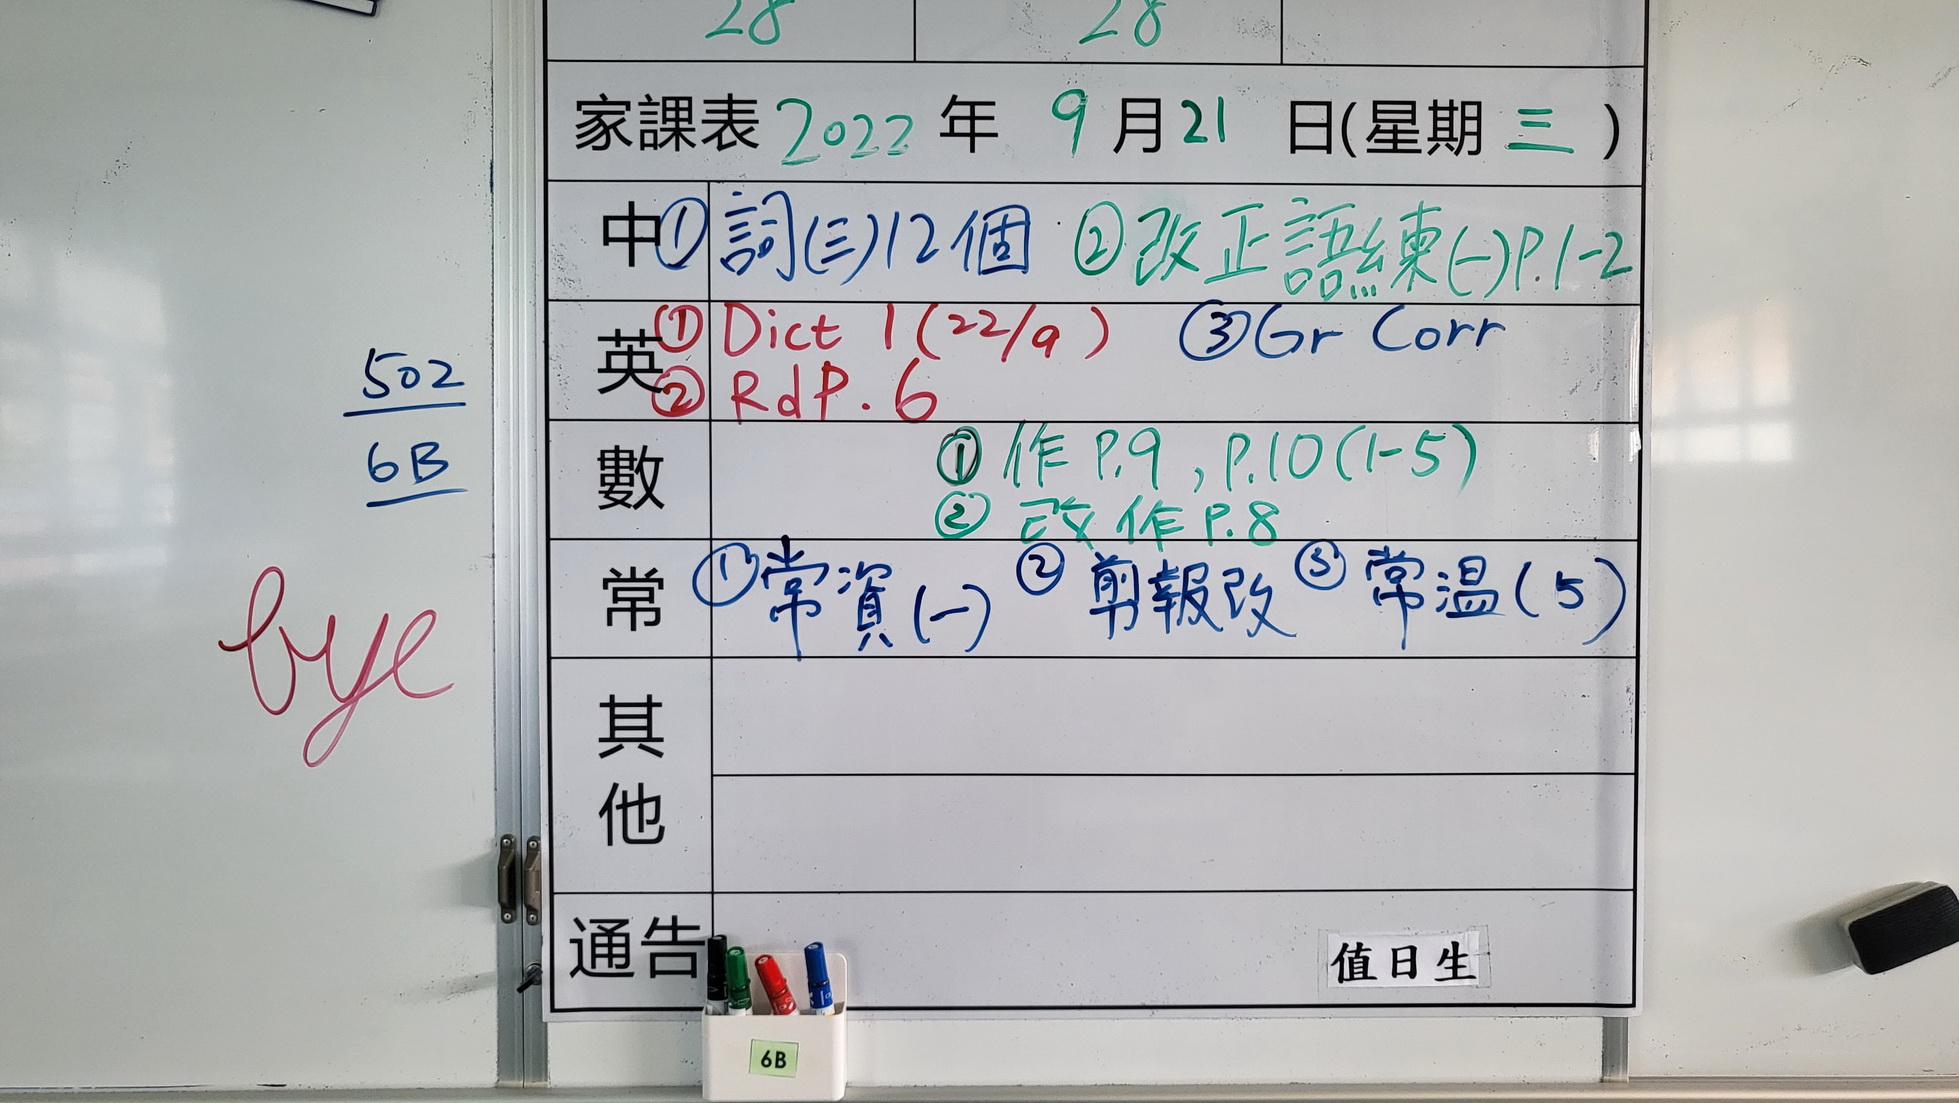 28 28
家課表 2022 年 9 月 21 日(星期 三 )
中 ① 詞(三)12個 ② 改正語練(一)P.1-2
英 ① Dict 1 (22/9) ③ Gr Corr
② RdP. 6
數 ① 作 P.9, P.10 (1-5)
② 改作 P.8
常 ① 常資(一) ② 剪報改 ③ 常温(5)
其他
通告
值日生
502
6B
bye
6B